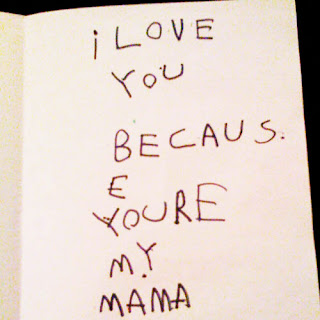 i LOVE
YOU
BECAUS.
E
YOURE
M.Y
MAMA